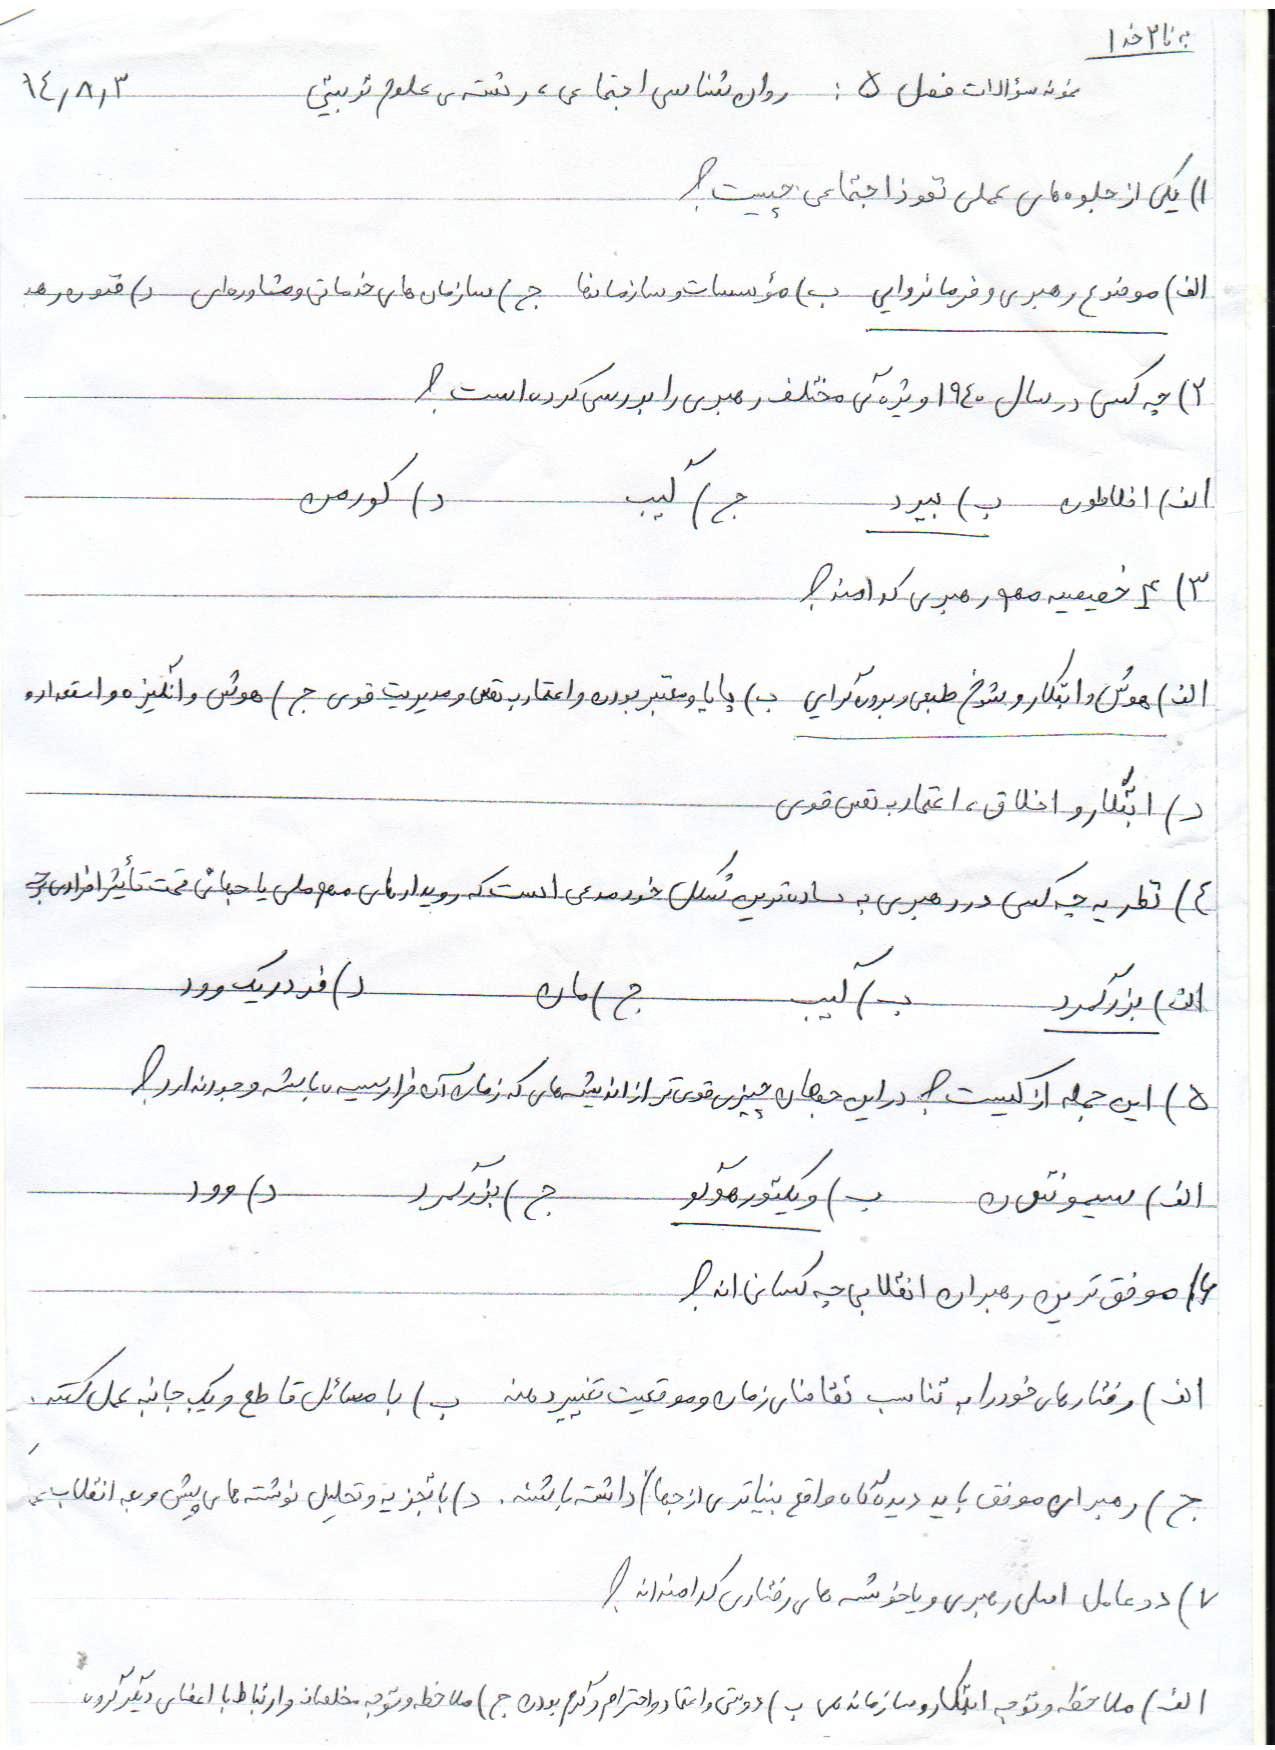 به نام خدا
نمونه سؤالات فصل ۵ : روان شناسی اجتماعی، رشته ی علوم تربیتی ۹٤/۸/۳
۱) یکی از جلوه های عملی نفوذ اجتماعی چیست؟
الف) موضوع رهبری و فرمانروایی ب) مؤسسات و سازمانها ج) سازمان های خدماتی و مشاوره ای د)
۲) چه کسی در سال ۱۹٤۰ ویژه گی مختلف رهبری را بررسی کرده است؟
الف) افلاطون ب) بیرد ج) گیب د) کورمن
۳) ۴ خصیصیه مهم رهبری کدامند؟
الف) هوش و ابتکار و شوخ طبعی و برون گرایی ب) پایا و معتبر بودن و اعتماد به نفس و مدیریت قوی ج) هوش و انگیزه و استعداد و
د) ابتکار و اخلاق، اعتماد به نفس قوی
٤) نظریه چه کسی در رهبری به ساده ترین شکل خود مدعی است که رویدادهای مهم ملی یا جهانی تحت تأثیر افرادی
الف) بزرگمرد ب) گیب ج) مان د) فردریک وود
۵) این جمله از کیست؟ در این جهان چیزی قوی تر از اندیشه های که زمان آن فرا رسیده باشد وجود ندارد؟
الف) سیمونتن ب) ویکتور هوگو ج) بزرگمرد د) وود
۶) موفق ترین رهبران انقلابی چه کسانی اند؟
الف) رفتارهای خود را به تناسب تقاضای زمان و موقعیت تغییر دهند ب) با مسائل قاطع و یک جانبه عمل کنند.
ج) رهبران موفق باید دیدگاه واقع بنیانتری از جهان داشته باشند. د) با تجزیه و تحلیل نوشته های پیش و بعد انقلاب
۷) دو عامل اصلی رهبری و یا خوشه های رفتاری کدامند اند؟
الف) ملاحظه و توجه ابتکار و سازماندهی ب) دوستی و اعتماد و احترام و گرم بودن ج) ملاحظه و توجه مخلصانه و ارتباط با اعضای دیگر گروه